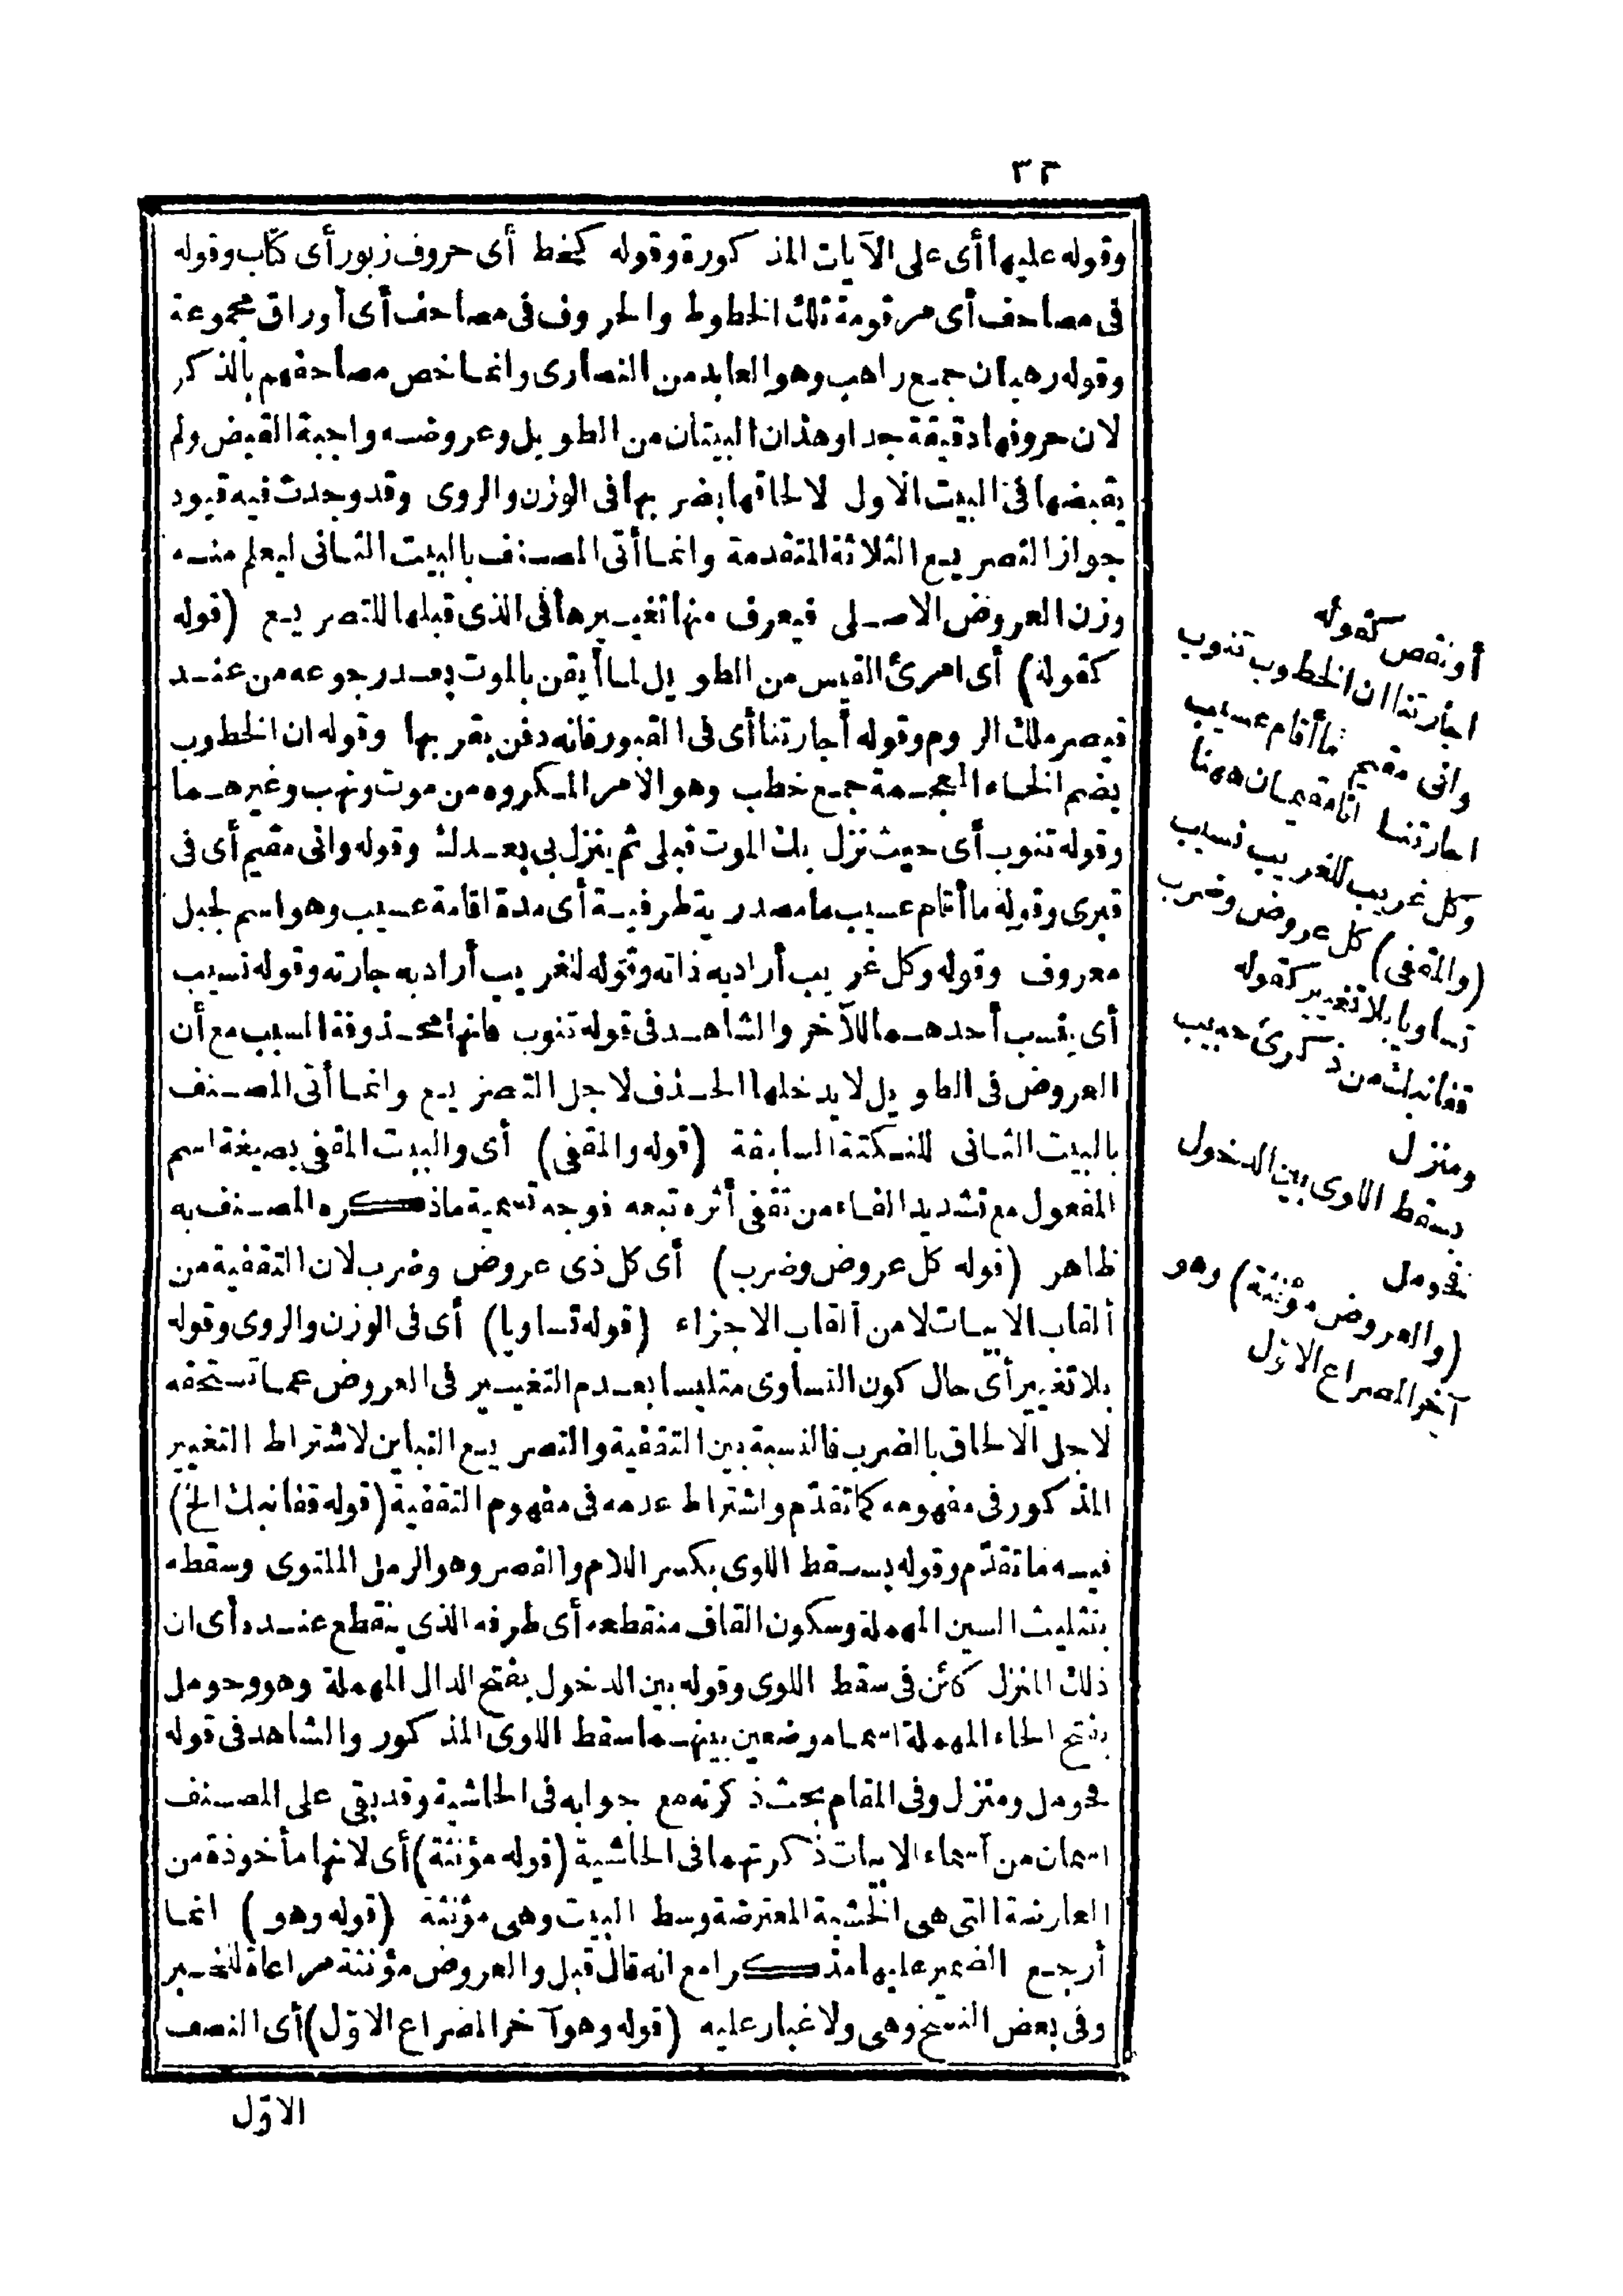 ٣٢
وقوله عليها أى على الآيات المذكورة وقوله كخط أى حروف زبور أى كتاب وقوله
فى مصاحف أى مرقومة تلك الخطوط والحروف فى مصاحف أى أوراق مجموعة
وقوله رهبان جمع راهب وهو العابد من النصارى وانما خص مصاحفهم بالذكر
لان حروفها دقيقة جدا وهذان البيتان من الطويل وعروضه واجبة القبض ولم
يقبضها فى البيت الاول لالحاقها بضربها فى الوزن والروى وقد وجدت فيه قيود
جواز التصريع الثلاثة المتقدمة وانما أتى المصنف بالبيت الثانى ليعلم منه
وزن العروض الاصلى فيعرف منها تغييرها فى الذى قبلها للتصريع (قوله
كقوله) أى امرئ القيس من الطويل لما أيقن بالموت بعد رجوعه من عند
قيصر ملك الروم وقوله أجارتنا أى فى القبور فانه دفن بقربها وقوله ان الخطوب
بضم الخاء المعجمة جمع خطب وهو الأمر المكروه من موت ونهب وغيرهما
وقوله تنوب أى حيث نزل بك الموت قبلى ثم ينزل بى بعدك وقوله وانى مقيم أى فى
قبرى وقوله ما أقام عسيب ما مصدرية ظرفية أى مدة اقامة عسيب وهو اسم لجبل
معروف وقوله وكل غريب أراد به ذاته وقوله لغريب أراد به جارته وقوله نسيب
أى ينسب أحدهما للآخر والشاهد فى قوله تنوب فانها محذوفة السبب مع أن
العروض فى الطويل لا يدخلها الحذف لاجل التصريع وانما أتى المصنف
بالبيت الثانى للنكتة السابقة (قوله والمقفى) أى والبيت المقفى بصيغة اسم
المفعول مع تشديد الفاء من تقفى أثره تبعه فوجه تسمية ما ذكره المصنف به
ظاهر (قوله كل عروض وضرب) أى كل ذى عروض وضرب لان التقفية من
ألقاب الابيات لا من ألقاب الاجزاء (قوله تساويا) أى فى الوزن والروى وقوله
بلا تغيير أى حال كون التساوى متلبسا بعدم التغيير فى العروض عما تستحقه
لاجل الالحاق بالضرب فالنسبة بين التقفية والتصريع التباين لاشتراط التغيير
المذكور فى مفهومه كما تقدّم واشتراط عدمه فى مفهوم التقفية (قوله قفا نبك الخ)
فيه ما تقدّم وقوله بسقط اللوى بكسر اللام والقصر وهو الرمل الملتوى وسقطه
بتثليث السين المهملة وسكون القاف منقطعه أى طرفه الذى ينقطع عنده أى ان
ذلك المنزل كائن فى سقط اللوى وقوله بين الدخول بفتح الدال المهملة وهو وحومل
بفتح الحاء المهملة اسما موضعين بينهما سقط اللوى المذكور والشاهد فى قوله
فحومل ومنزل وفى المقام بحث ذكرته مع جوابه فى الحاشية وقد بقى على المصنف
اسمان من أسماء الابيات ذكرتهما فى الحاشية (قوله مؤنثة) أى لانها مأخوذة من
العارضة التى هى الخشبة المعترضة وسط البيت وهى مؤنثة (قوله وهو) انما
أرجع الضمير عليها مذكرا مع انه قال قبل والعروض مؤنثة مراعاة للخبر
وفى بعض النسخ وهى ولا غبار عليه (قوله وهو آخر المصراع الاوّل) أى النصف
الاوّل
أو نقص كقوله
اجارتنا ان الخطوب تنوب
وانى مقيم ما أقام عسيب
اجارتنا انا مقيمان ههنا
وكل غريب للغريب نسيب
(والمقفى) كل عروض وضرب
تساويا بلا تغيير كقوله
قفا نبك من ذكرى حبيب
ومنزل
بسقط اللوى بين الدخول
فحومل
(والعروض مؤنثة) وهو
آخر المصراع الاوّل